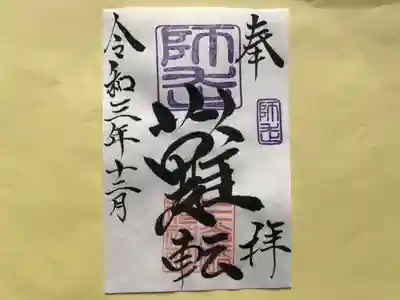 奉拝
師走
師走
難転
令和三年十二月